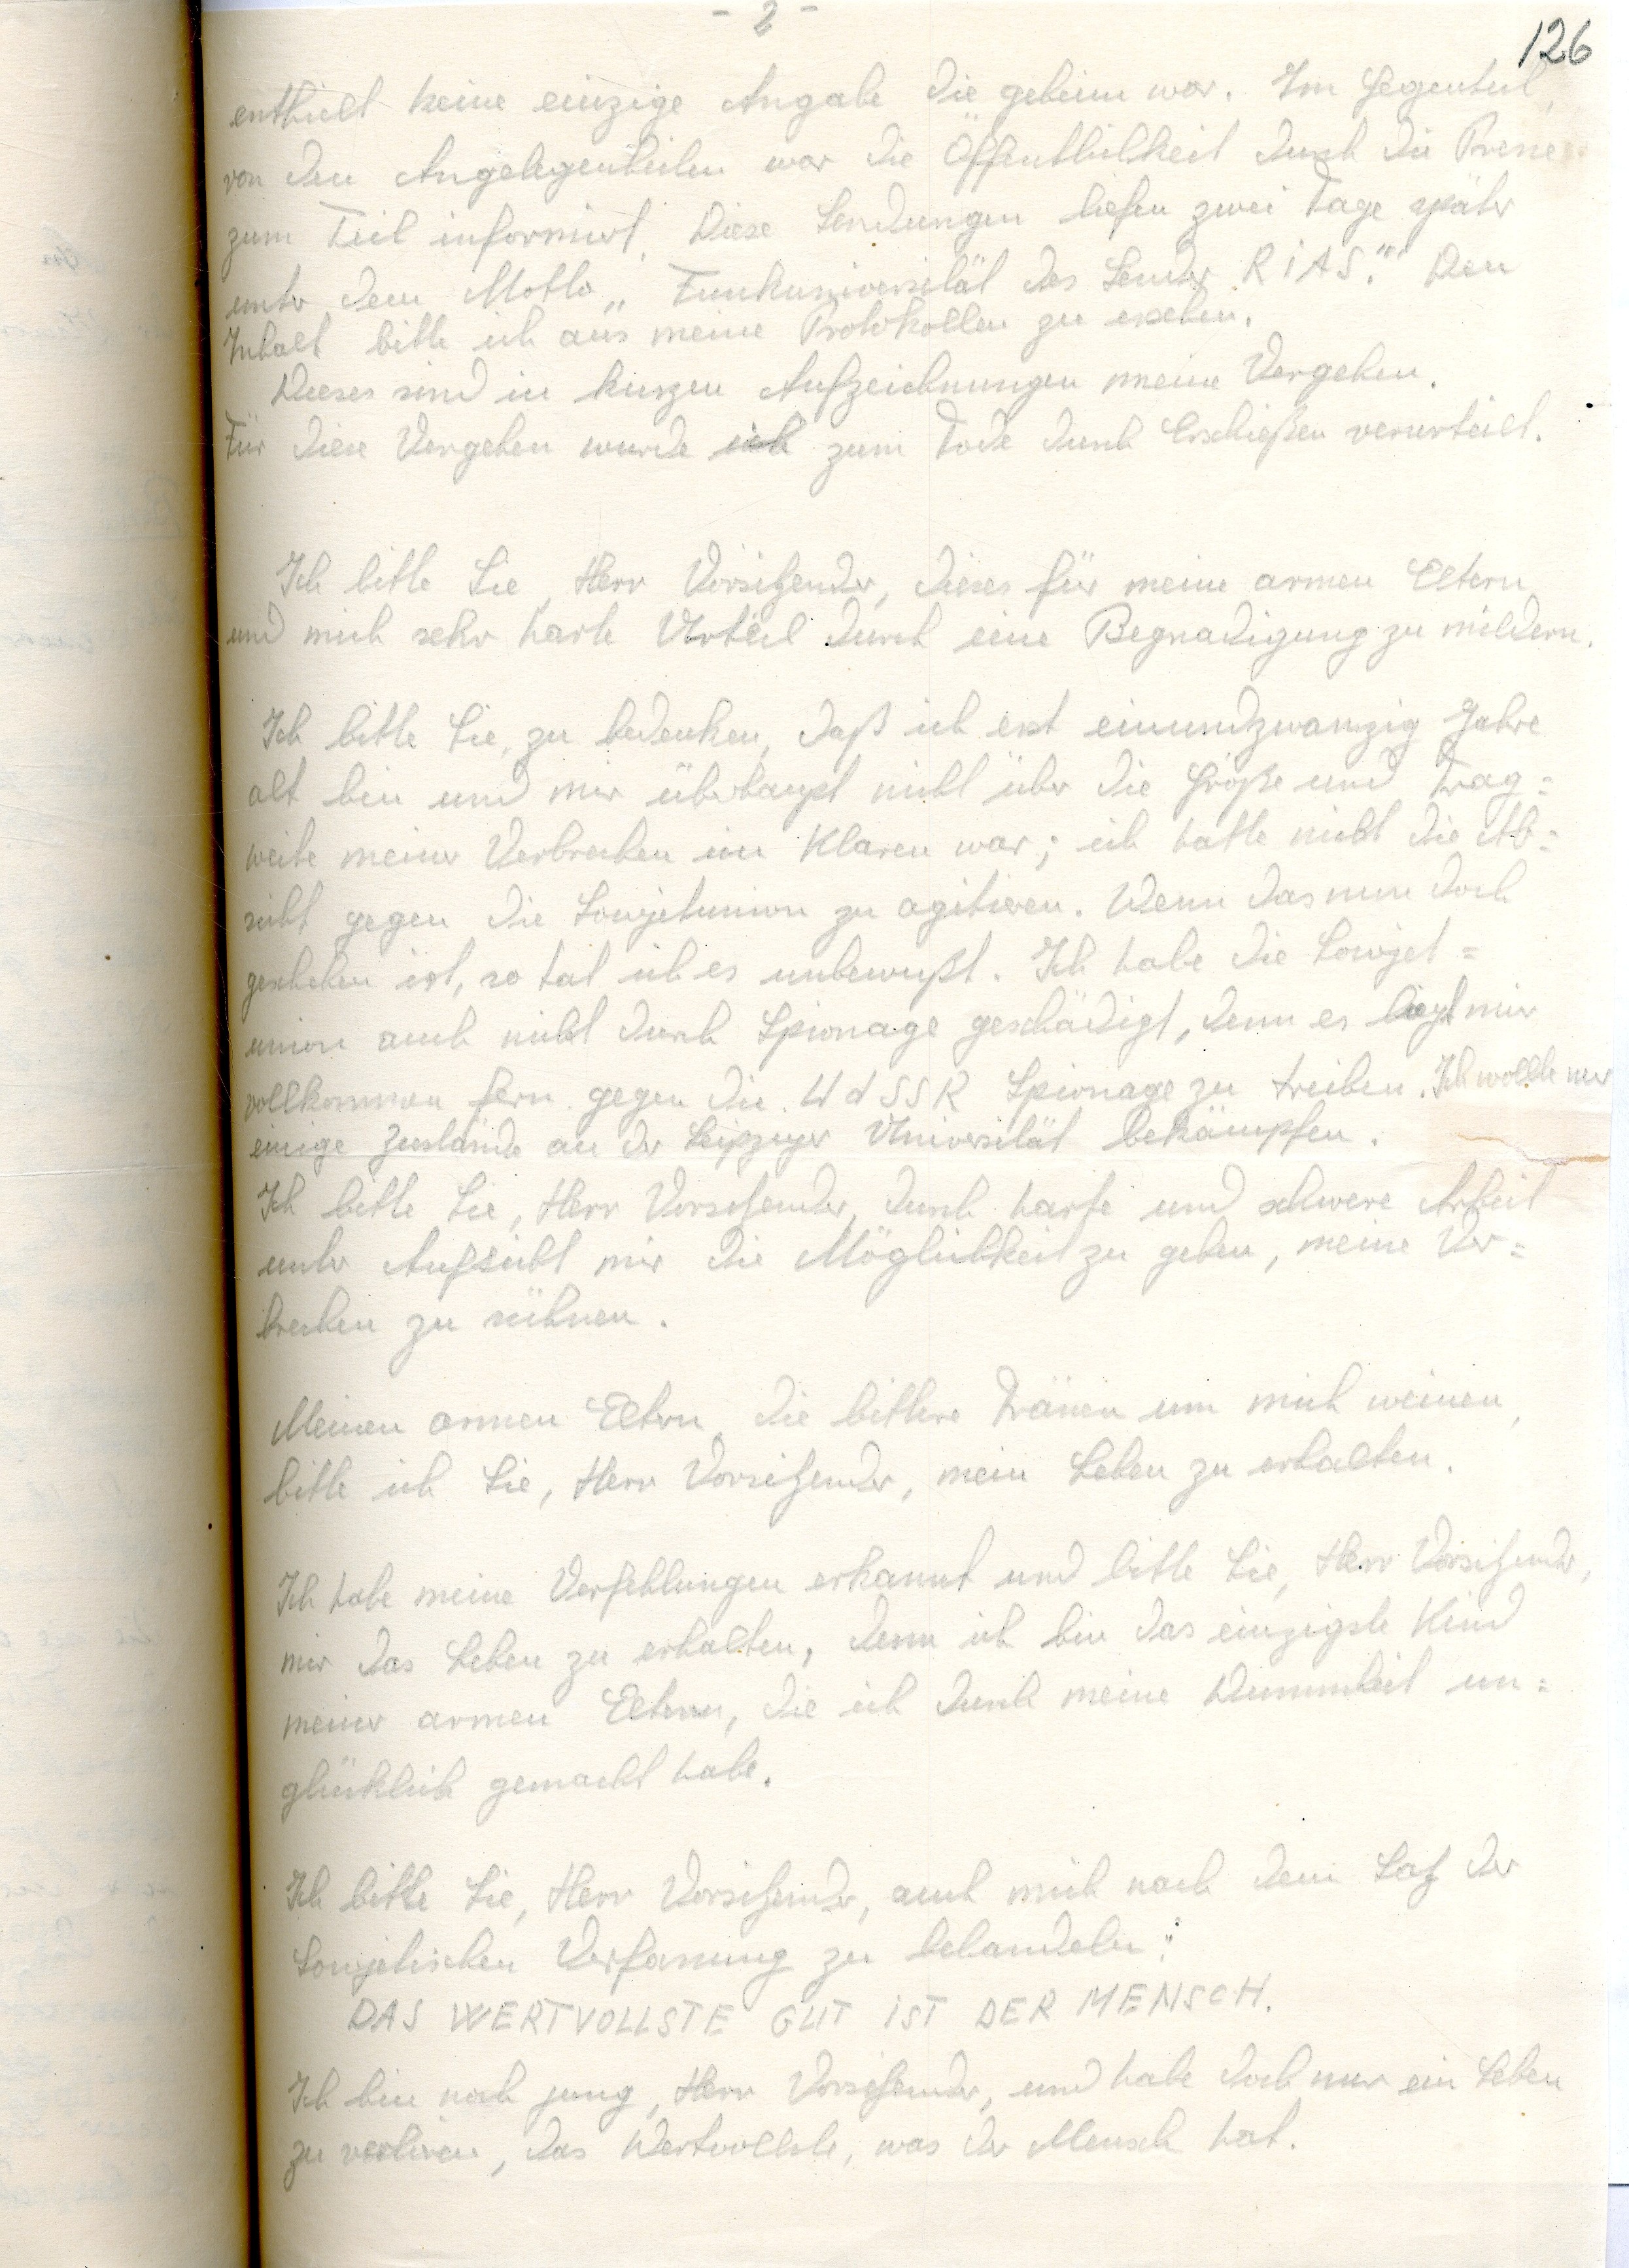 - 2 -
126
enthielt keine einzige Angabe die geheim war. Im Gegenteil,
von den Angelegenheiten war die Öffentlichkeit durch die Presse
zum Teil informiert. Diese Sendungen liefen zwei Tage später
unter dem Motto „Funkuniversität des Sender RIAS." Den
Inhalt bitte ich aus meine Protokollen zu ersehen.
Dieses sind in kurzen Aufzeichnungen meine Vergehen.
Für diese Vergehen wurde ich zum Tode durch Erschießen verurteilt.
Ich bitte Sie, Herr Vorsitzender, dieses für meine armen Eltern
und mich sehr harte Urteil durch eine Begnadigung zu mildern.
Ich bitte Sie, zu bedenken, daß ich erst einundzwanzig Jahre
alt bin und mir überhaupt nicht über die Größe und Trag=
weite meiner Verbrechen im Klaren war; ich hatte nicht die Ab=
sicht gegen die Sowjetunion zu agitieren. Wenn das nun doch
geschehen ist, so tat ich es unbewußt. Ich habe die Sowjet=
union auch nicht durch Spionage geschädigt, denn es liegt mir
vollkommen fern gegen die UdSSR Spionage zu treiben. Ich wollte nur
einige Zustände an der Leipziger Universität bekämpfen.
Ich bitte Sie, Herr Vorsitzender, durch harte und schwere Arbeit
unter Aufsicht mir die Möglichkeit zu geben, meine Ver=
brechen zu sühnen.
Meinen armen Eltern, die bittere Tränen um mich weinen,
bitte ich Sie, Herr Vorsitzender, mein Leben zu erhalten.
Ich habe meine Verfehlungen erkannt und bitte Sie, Herr Vorsitzender,
mir das Leben zu erhalten, denn ich bin das einzigste Kind
meiner armen Eltern, die ich durch meine Dummheit un=
glücklich gemacht habe.
Ich bitte Sie, Herr Vorsitzender, auch mich nach dem Satz der
Sowjetischen Verfassung zu behandeln:
DAS WERTVOLLSTE GUT IST DER MENSCH.
Ich bin noch jung, Herr Vorsitzender, und habe doch nur ein Leben
zu verlieren, das Wertvollste, was der Mensch hat.